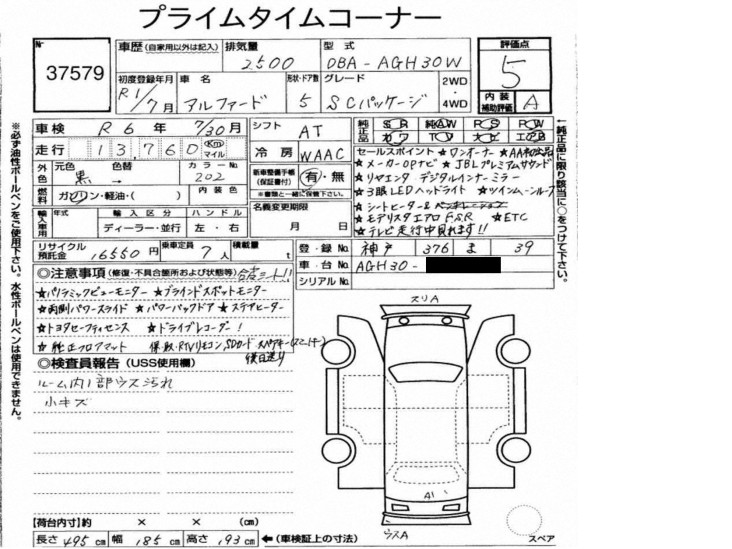 プライムタイムコーナー
№ 37579
車歴 (自家用以外は記入) 排気量 2500 型式 DBA-AGH30W 評価点 5
初度登録年月 R1/7月 車名 アルファード 形状・ドア数 5 グレード SCパッケージ 2WD・4WD 内装補助評価 A
車検 R6年 7/30月 シフト AT 純正品 SR 純AW PS PW
カワ TV ナビ エアB
走行 13,760 Km マイル 冷房 WAAC
外色 元色 黒 色替 → カラーNo. 202 新車整備手帳(保証書付) 有・無
※書類と一緒に保管下さい。
燃料 ガソリン・軽油・( ) 内装色
輸入車用 年式 輸入区分 ディーラー・並行 ハンドル 左・右 名義変更期限 月 日
セールスポイント ★ワンオーナー ★AA初出品
★メーカーOPナビ ★JBLプレミアムサウンド
★リヤエンタ デジタルインナーミラー
★3眼LEDヘッドライト ★ツインムーンルーフ
★シートヒーター&ベンチレーション
★モデリスタエアロ F.S.R ★ETC
★テレビ走行中見れます!!
リサイクル預託金 16550円 乗車定員 7人 積載量 t
登録No. 神戸 376 ま 39
車台No. AGH30-
シリアルNo.
◎注意事項 (修復・不具合箇所および状態等)
★パノラミックビューモニター ★ブラインドスポットモニター
★両側パワースライド ★パワーバックドア ★ステアヒーター
★トヨタセーフティセンス ★ドライブレコーダー!
★純正フロアマット 保、取、RTVリモコン、SDカード スペアキー
後日送り
◎検査員報告 (USS使用欄)
ルーム内1部ウス汚れ
小キズ
スリA
A1
ウスA
【荷台内寸】約 × × (cm)
長さ 495cm 幅 185cm 高さ 193cm ←(車検証上の寸法) スペア
※必ず油性ボールペンをご使用下さい。水性ボールペンは使用できません。
←純正品に限り該当に○をつけて下さい。